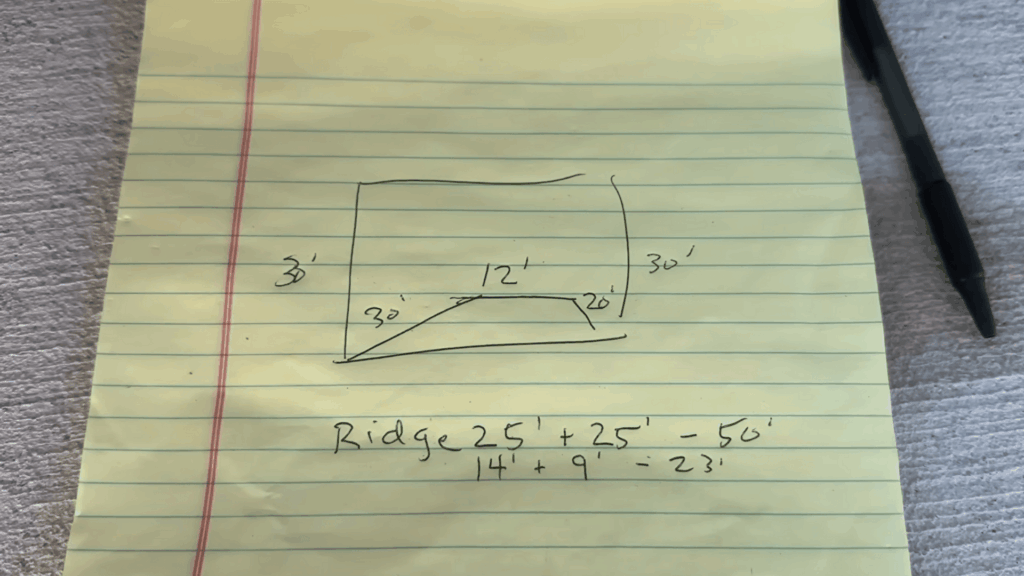 12'
30' 30'
30' 20'
Ridge 25' + 25' - 50'
14' + 9' - 23'